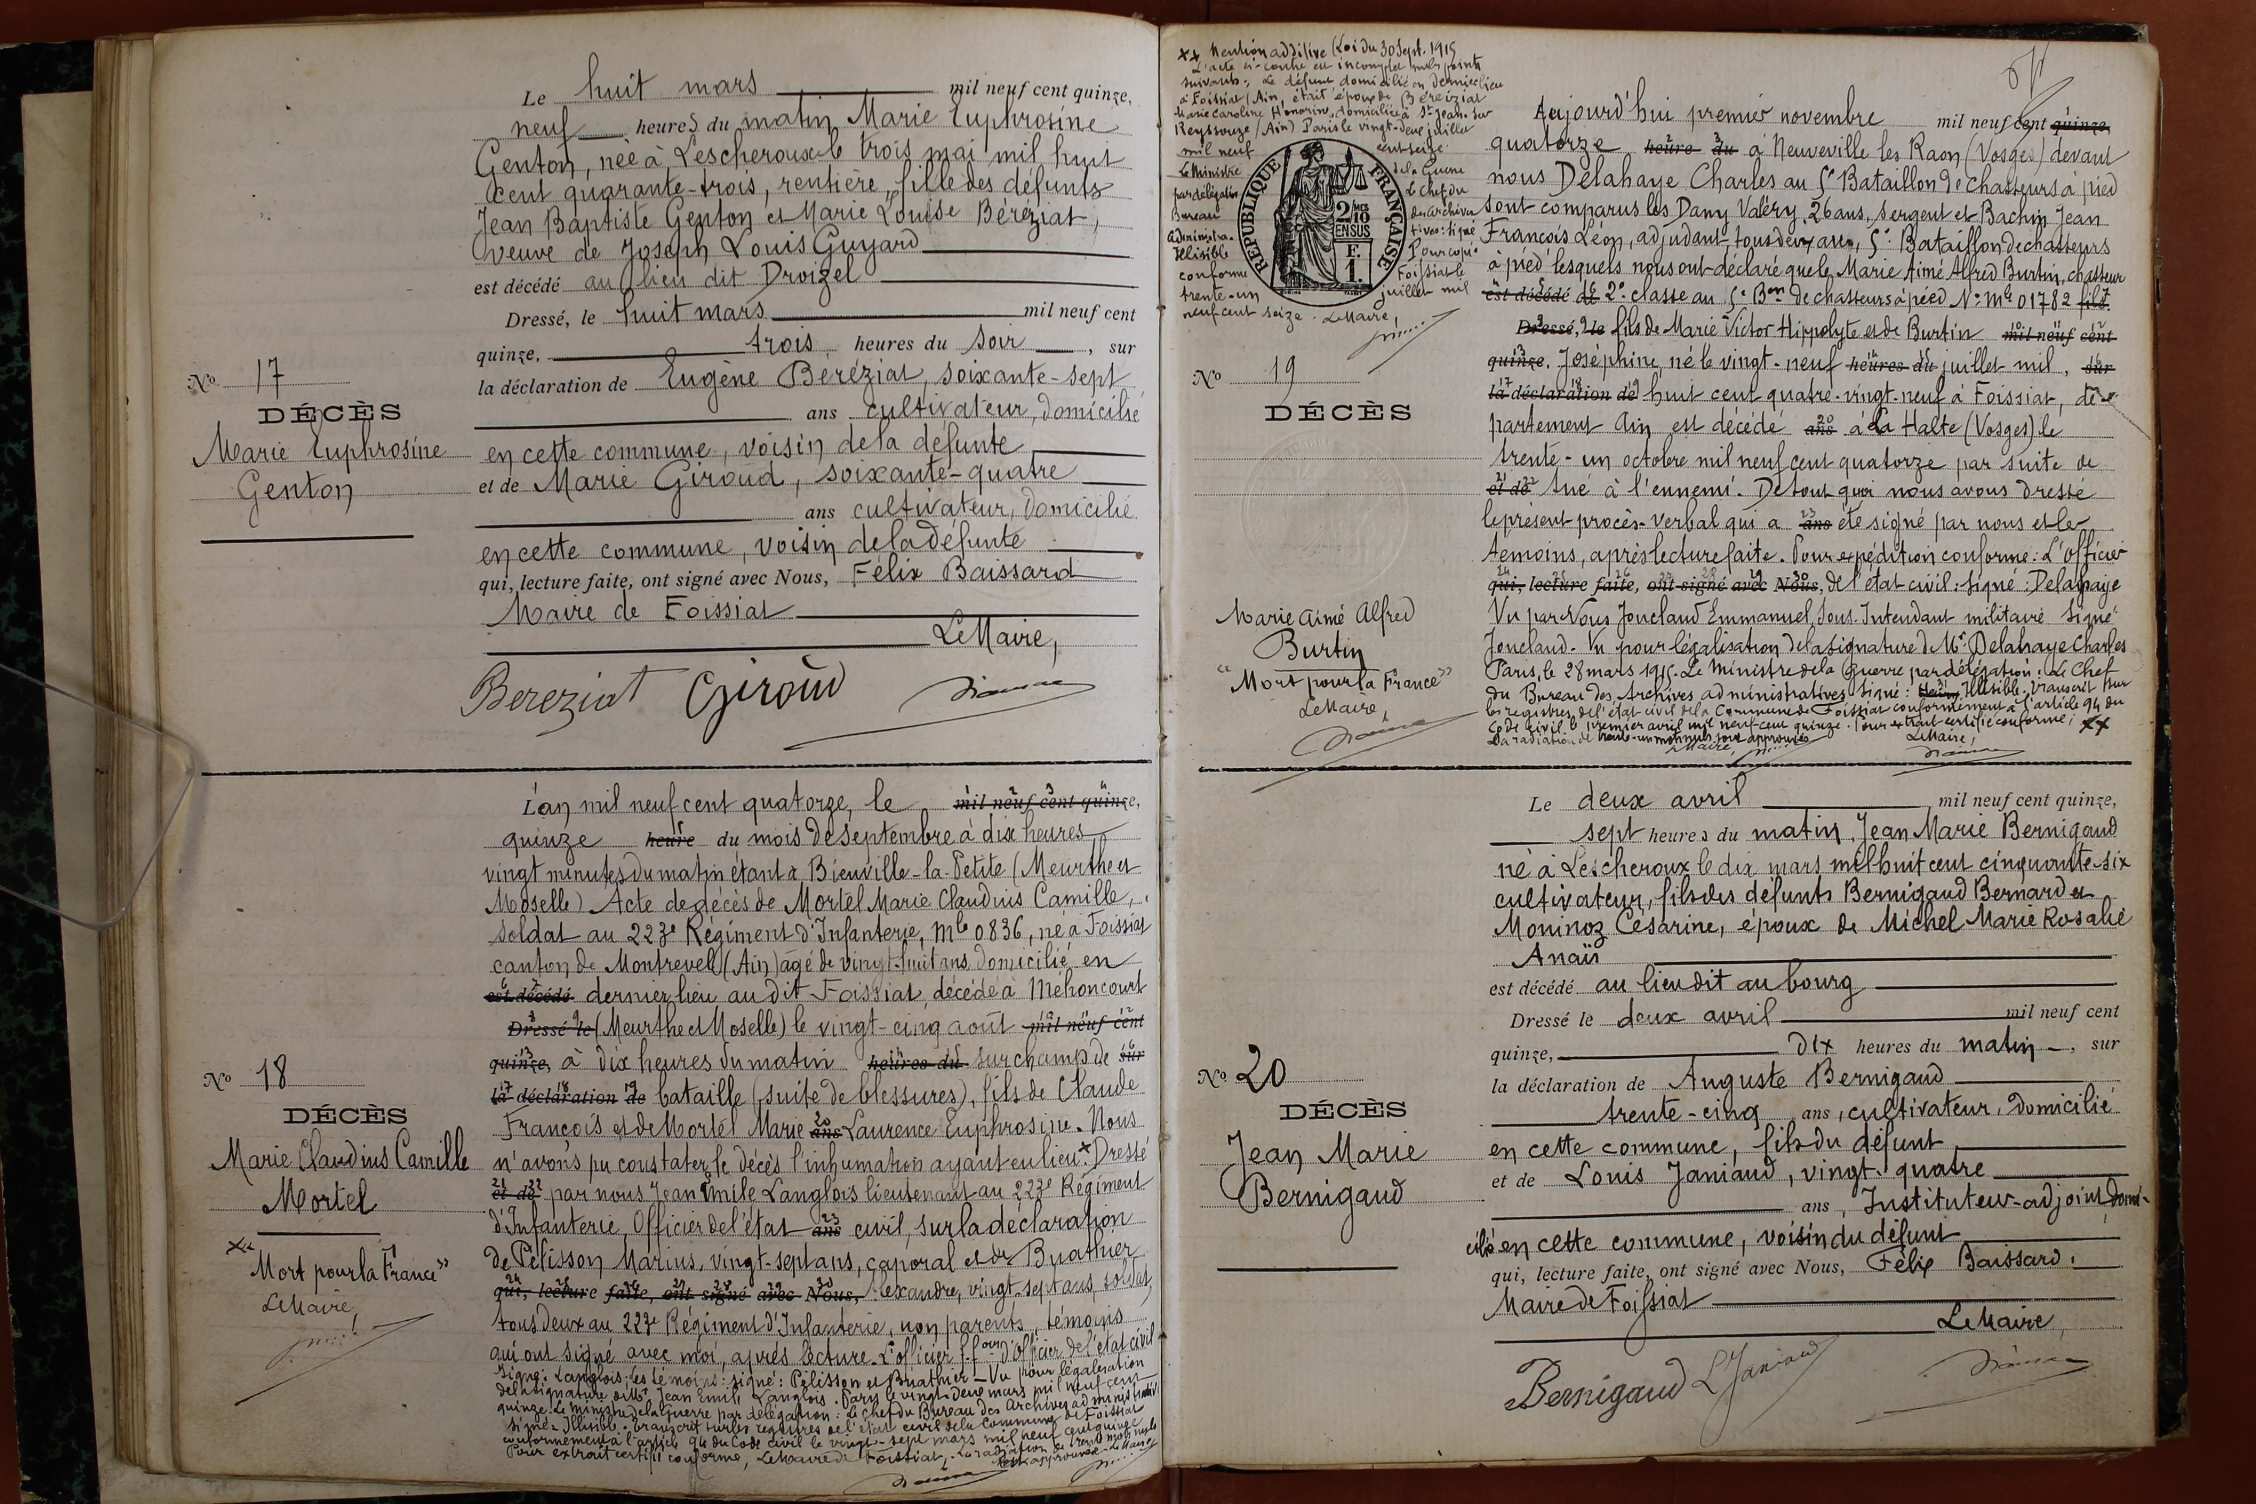 Le huit mars mil neuf cent quinze,
neuf heures du matin Marie Euphrosine
Genton, née à Lescheroux le trois mai mil huit
cent quarante-trois, rentière, fille des défunts
Jean Baptiste Genton et Marie Louise Béréziat,
veuve de Joseph Louis Guyard
est décédé au lieu dit Droizel
Dressé, le huit mars mil neuf cent
quinze, trois heures du soir, sur
No 17
la déclaration de Eugène Béréziat, soixante-sept
DÉCÈS
ans cultivateur, domicilié
Marie Euphrosine
Genton
en cette commune, voisin de la défunte
et de Marie Giroud, soixante-quatre
ans cultivateur, domicilié
en cette commune, voisin de la défunte
qui, lecture faite, ont signé avec Nous, Félix Baissard
Maire de Foissiat
Le Maire,
Bereziat Giroud
L'an mil neuf cent quatorze, le mil neuf cent quinze,
quinze heure du mois de septembre à dix heures
vingt minutes du matin étant à Bienville-la-Petite (Meurthe et
Moselle) Acte de décès de Mortel Marie Claudius Camille,
soldat au 223e Régiment d'Infanterie, Mle 0836, né à Foissiat
canton de Montrevel (Ain) âgé de vingt-huit ans, domicilié en
est décédé dernier lieu au dit Foissiat, décédé à Méhoncourt
Dressé le (Meurthe et Moselle) le vingt-cinq août mil neuf cent
quinze, à dix heures du matin heures du sur champ de sur
No 18
la déclaration de bataille (suite de blessures), fils de Claude
DÉCÈS
François et de Mortel Marie ans Laurence Euphrosine. Nous
Marie Claudius Camille
Mortel
n'avons pu constater le décès l'inhumation ayant eu lieu. Dressé
et de par nous Jean Emile Langlois lieutenant au 223e Régiment
d'Infanterie, Officier de l'état ans civil, sur la déclaration
de Pélisson Marius, vingt-sept ans, caporal et de Buathier
qui, lecture faite, ont signé avec Nous, Alexandre, vingt-sept ans, soldat,
"Mort pour la France"
Le Maire,
tous deux au 223e Régiment d'Infanterie, non parents, témoins
qui ont signé avec moi, après lecture. L'officier f.f. d'Officier de l'état civil
Signé: Langlois; les témoins: signé: Pélisson et Buathier - Vu pour légalisation
de la signature de Mr Jean Emile Langlois. Paris le vingt-deux mars mil neuf cent
quinze. Le Ministre de la Guerre par délégation: Le Chef du Bureau des Archives administratives
signé: Illisible. Transcrit sur les registres de l'état civil de la Commune de Foissiat
conformément à l'article 94 du Code civil le vingt-sept mars mil neuf cent quinze
Pour extrait certifié conforme, Le Maire de Foissiat, La radiation de trente mots nuls
est approuvée - Le Maire
Mention additive (Loi du 30 Sept. 1915
L'acte ci-contre est incomplet aux points
suivants: Le défunt domicilié en dernier lieu
à Foissiat (Ain), était époux de Béréziat
Marie Caroline Honorine, domiciliée à St Jean-sur
Reyssouze (Ain) Paris le vingt-deux juillet
mil neuf cent seize.
Le Ministre de la Guerre
par délégation le chef du
Bureau des Archives
Administratives: signé
Illisible Pour copie
conforme Foissiat le
trente-un juillet mil
neuf cent seize. Le Maire,
RÉPUBLIQUE FRANÇAISE
2/10 EN SUS
F. 1.
No 19
DÉCÈS
Marie Aimé Alfred
Burtin
"Mort pour la France"
Le Maire,
Aujourd'hui premier novembre mil neuf cent quinze,
quatorze heure du à Neuveville les Raon (Vosges) devant
nous Delahaye Charles au 5e Bataillon de Chasseurs à pied
sont comparus les Dany Valéry, 26 ans, sergent et Bachin Jean
François Léon, adjudant, tous deux au 5e Bataillon de chasseurs
à pied lesquels nous ont déclaré que le Marie Aimé Alfred Burtin, chasseur
est décédé de 2e classe au 5e Bon de chasseurs à pied No Mle 01782 fils
Dressé, le fils de Marie Victor Hippolyte et de Burtin mil neuf cent
quinze, Joséphine, né le vingt-neuf heures du juillet mil, sur
la déclaration de huit cent quatre-vingt-neuf à Foissiat, dé-
partement Ain est décédé ans à La Halte (Vosges) le
trente-un octobre mil neuf cent quatorze par suite de
et de tué à l'ennemi. De tout quoi nous avons dressé
le présent procès-verbal qui a ans été signé par nous et le
témoins, après lecture faite. Pour expédition conforme: L'officier
qui, lecture faite, ont signé avec Nous, de l'état civil: signé: Delahaye
Vu par Nous Joucland Emmanuel, Sous-Intendant militaire signé
Joucland. Vu pour légalisation de la signature de Mr Delahaye Charles
Paris, le 28 mars 1915. Le Ministre de la Guerre par délégation: Le Chef
du Bureau des Archives administratives signé: Illisible. Transcrit sur
les registres de l'état civil de la Commune de Foissiat conformément à l'article 94 du
Code civil le premier avril mil neuf cent quinze. Pour extrait certifié conforme;
La radiation de trente-un mots nuls est approuvée Le Maire,
Le Maire,
Le deux avril mil neuf cent quinze,
sept heures du matin, Jean Marie Bernigaud
né à Lescheroux le dix mars mil huit cent cinquante-six
cultivateur, fils des défunts Bernigaud Bernard et
Moninoz Césarine, époux de Michel Marie Rosalie
Anaïs
est décédé au lieu dit au bourg
Dressé le deux avril mil neuf cent
quinze, dix heures du matin, sur
No 20
la déclaration de Auguste Bernigaud
DÉCÈS
trente-cinq ans, cultivateur, domicilié
Jean Marie
Bernigaud
en cette commune, fils du défunt
et de Louis Janiaud, vingt-quatre
ans, Instituteur-adjoint, domi-
cilié en cette commune, voisin du défunt
qui, lecture faite, ont signé avec Nous, Félix Baissard,
Maire de Foissiat
Le Maire,
Bernigaud L Janiaud